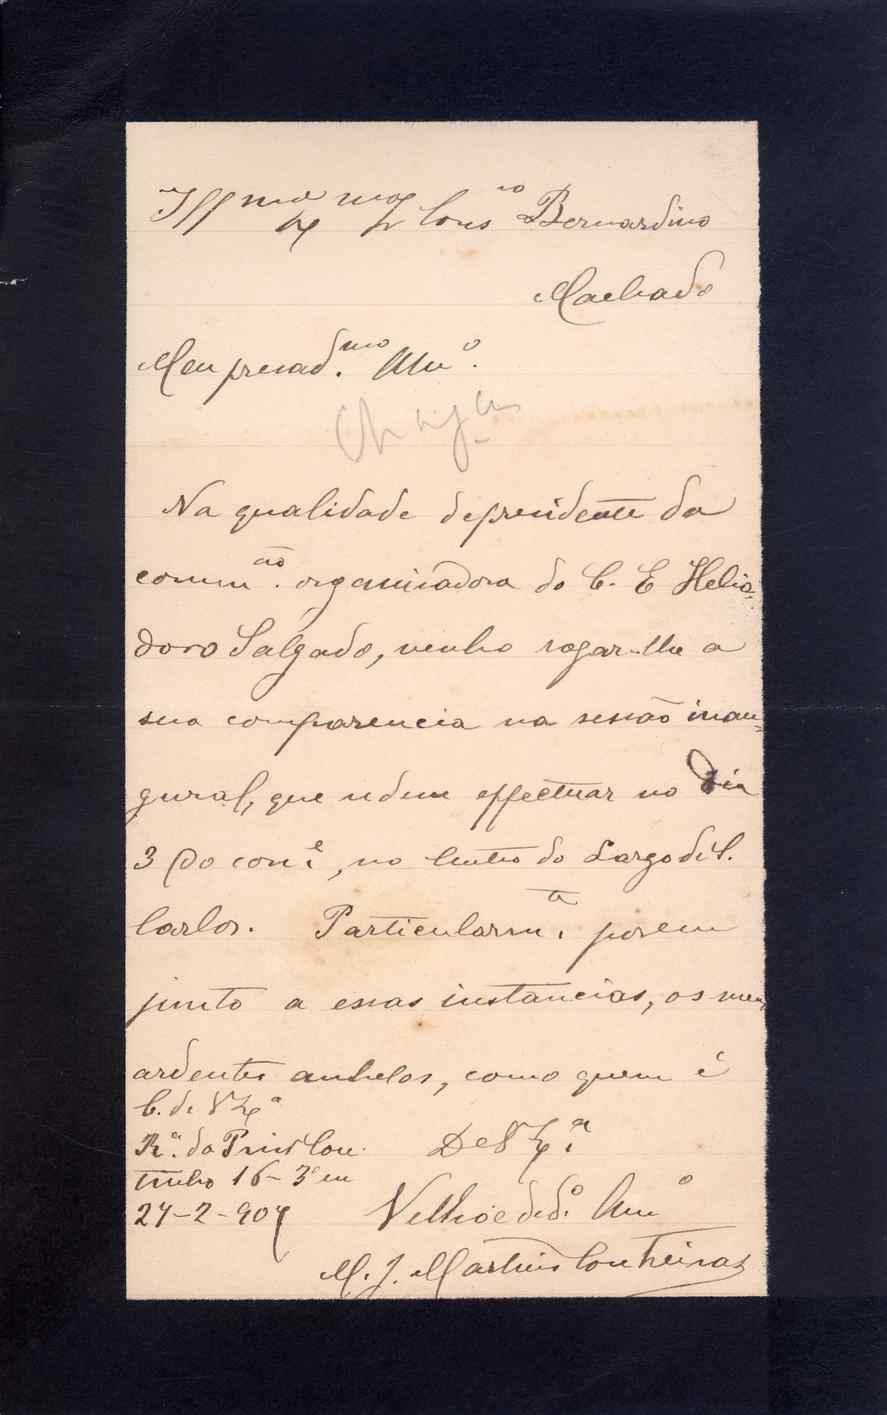 Illmo Exmo Sr Consro Bernardino
Machado
Meu presad.mo Amo.
Na qualidade de presidente da
commão. organisadora do C. E Helio=
doro Salgado, venho rogar-lhe a
sua comparencia na sessão inau=
gural, que se deve effectuar no dia
3 do con.e, no Centro do Largo de S.
Carlos. Particularm.te porem
junto a essas instancias, os meus
ardentes anhelos, como quem é
C. de V Exa
Ra. da Princ Cou
tinho 16-3º em
24-2-907
De V Exa.
Velho e ded.o Amo
M. J. Martins Contreiras